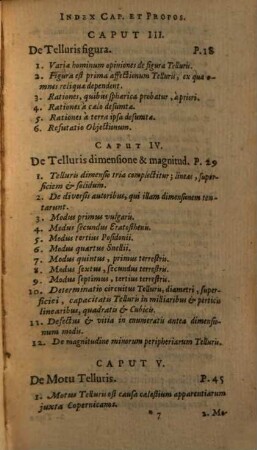 INDEX CAP. ET PROPOS.
CAPUT III.
De Telluris figura. P. 18
1. Varia hominum opiniones de figura Telluris.
2. Figura est prima affectionum Telluris, ex qua o-
mnes reliqua dependent.
3. Rationes, quibus sphærica probatur, à priori.
4. Rationes à cælo desumta.
5. Rationes à terra ipsa desumta.
6. Refutatio Objectionum.
CAPUT IV.
De Telluris dimensione & magnitud. P. 29
1. Telluris dimensio tria complectitur; lineas, super-
ficiem & solidum.
2. De diversis autoribus, qui illam dimensionem ten-
tarunt.
3. Modus primus vulgaris.
4. Modus secundus Eratosthenis.
5. Modus tertius Posidonii.
6. Modus quartus Snellii.
7. Modus quintus, primus terrestris.
8. Modus sextus, secundus terrestris.
9. Modus septimus, tertius terrestris.
10. Determinatio circuitus Telluris, diametri, super-
ficiei, capacitatis Telluris in milliaribus & perticis
linearibus, quadratis & Cubicis.
11. Defectus & vitia in enumeratis antea dimensio-
num modis.
12. De magnitudine minorum peripheriarum Telluris.
CAPUT V.
De Motu Telluris. P. 45
1. Motus Telluris est causa cælestium apparentiarum
juxta Copernicanos.
* 7 2. Mo-